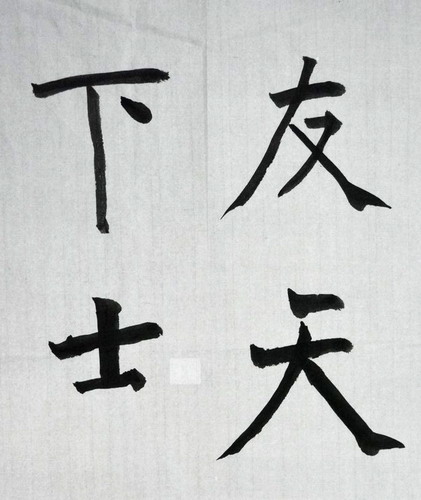 友天
下士